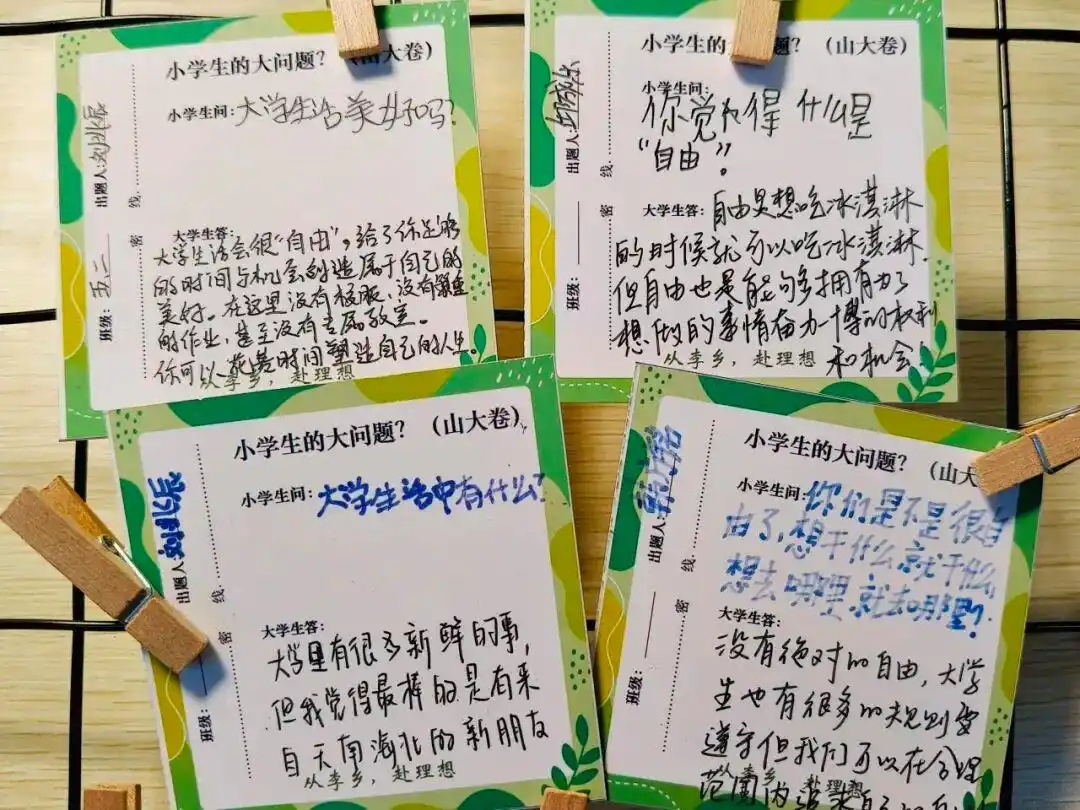 小学生的大问题？（山大卷）
小学生问：大学生活美好吗？
大学生答：
大学生活会很“自由”，给了你足够
的时间与机会创造属于自己的
美好。在这里没有校服，没有繁重
的作业，甚至没有专属教室。
你可以花费时间塑造自己的人生。
从李乡，赴理想
出题人：刘北辰
班级：五二
密
线
小学生的大问题？（山大卷）
小学生问：
你觉得什么是
“自由”？
大学生答：自由是想吃冰淇淋
的时候就可以吃冰淇淋.
但自由也是能够拥有为了
想做的事情奋力一博的权利
和机会！
从李乡，赴理想
出题人：
班级：
密
线
小学生的大问题？（山大卷）
小学生问：大学生活中有什么？
大学生答：
大学里有很多新鲜的事，
但我觉得最棒的是有来
自天南海北的新朋友
从李乡，赴理想
出题人：刘北辰
班级：
密
线
小学生的大问题？（山大
小学生问：你们是不是很自
由了，想干什么就干什么，
想去哪里就去哪里？
大学生答：
没有绝对的自由，大学
生也有很多的规则要
遵守但我们可以在合理
范围内追求自己的
从李乡，赴理想
出题人：
班级：
密
线